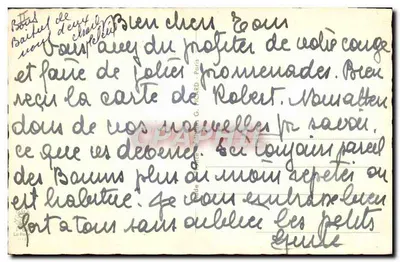 Bons
Baisers de
nous deux
Bien chers Tous
Vous avez du profiter de votre congé
et faire de jolies promenades. Bien
reçu la carte de Robert. Nous atten
dons de vos nouvelles pr savoir
ce que vs devenez. Ici toujours pareil
des Bonnes plus ou moins répéter on
est habituée. Je vous embrasse bien
fort a tous sans oublier les petits